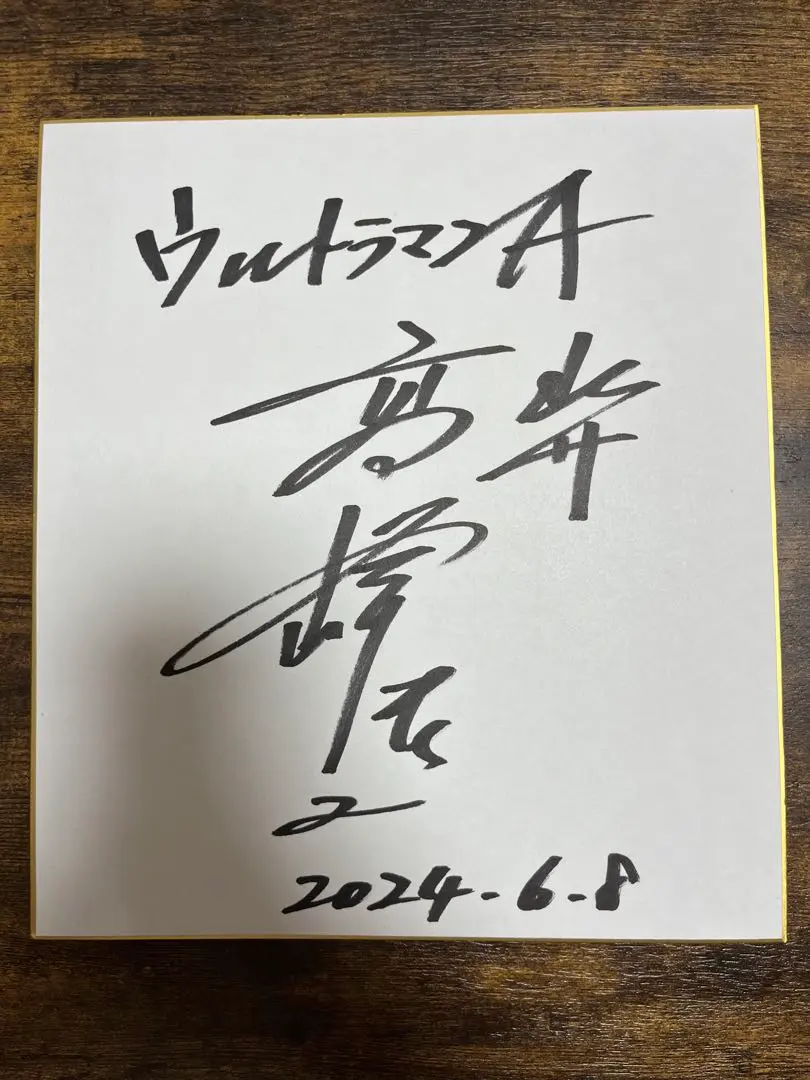 ウルトラマンA
北斗
高峰圭二
2024.6.8